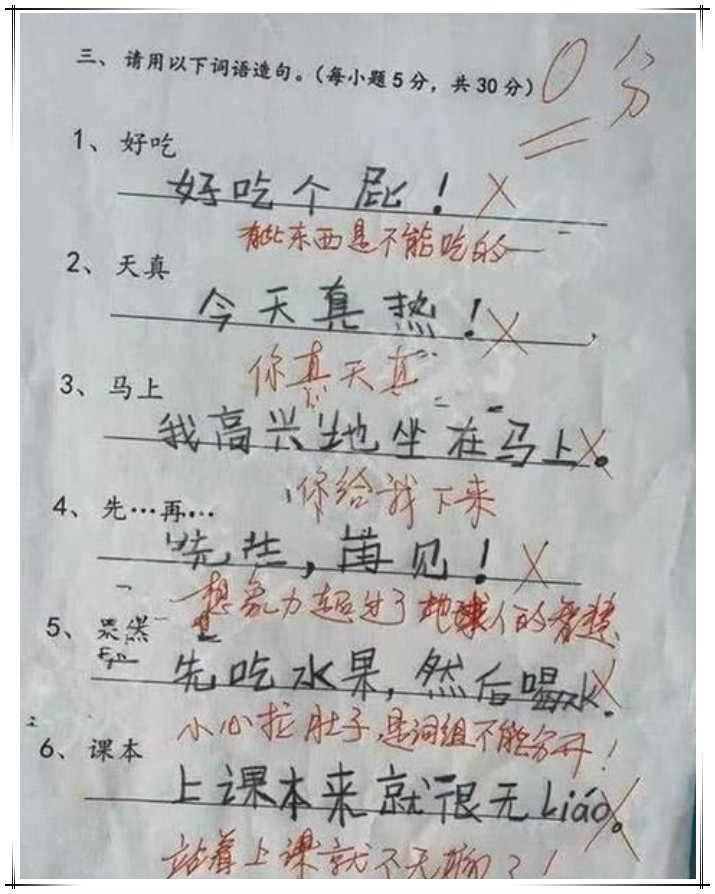 三、请用以下词语造句。（每小题5分，共30分）
0分
1、好吃
好吃个屁！
有些东西是不能吃的
2、天真
今天真热！
你真天真
3、马上
我高兴地坐在马上。
你给我下来
4、先…再…
先生，再见！
想象力超过了地球人的智慧
5、果然
先吃水果，然后喝水.
小心拉肚子，是词组不能分开！
6、课本
上课本来就很无Liáo。
站着上课就不无聊了！